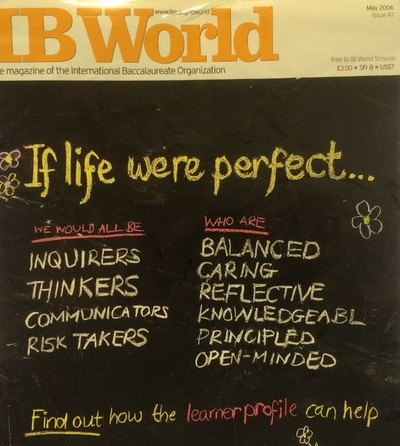 www.ibo.org/ibworld
May 2006,
Issue 47
IB World
e magazine of the International Baccalaureate Organization
Free to IB World Schools
£3.50 • SFr 8 • US$7
If life were perfect...
WE WOULD ALL BE
INQUIRERS
THINKERS
COMMUNICATORS
RISK TAKERS
WHO ARE
BALANCED
CARING
REFLECTIVE
KNOWLEDGEABL
PRINCIPLED
OPEN-MINDED
Find out how the learner profile can help